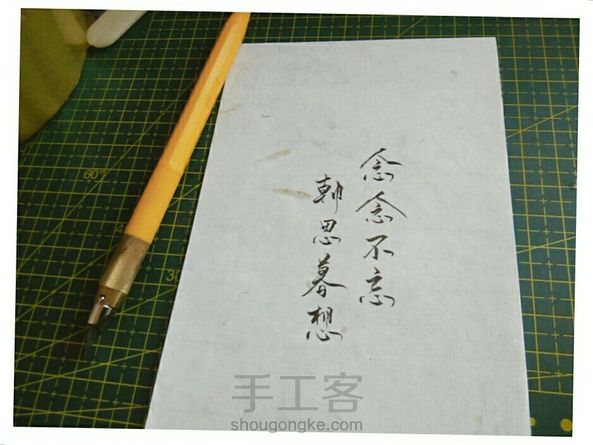 念念不忘
朝思暮想
手工客
shougongke.com
60°